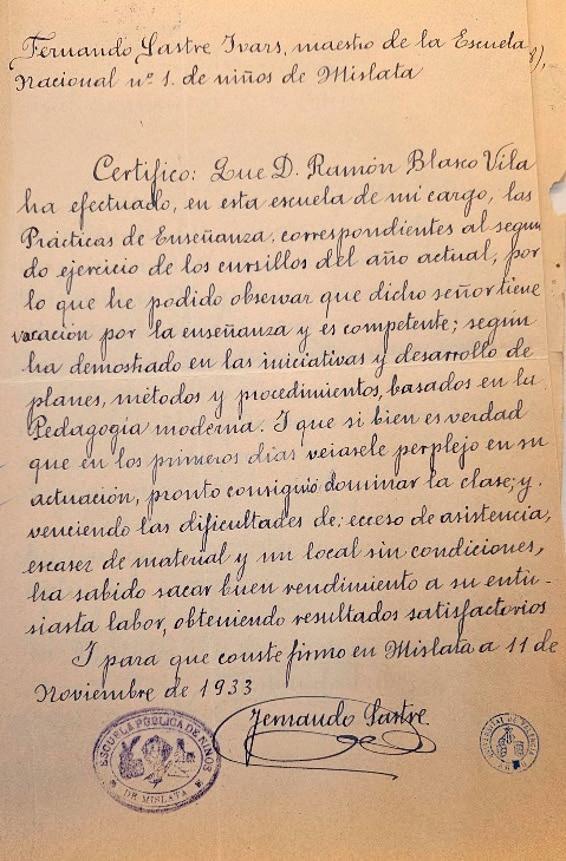 Fernando Sastre Ivars, maestro de la Escuela
Nacional nº 1. de niños de Mislata
Certifico: Que D. Ramón Blasco Vila
ha efectuado, en esta escuela de mi cargo, las
Prácticas de Enseñanza, correspondientes al segun
do ejercicio de los cursillos del año actual, por
lo que he podido observar que dicho señor tiene
vocación por la enseñanza y es competente; según
ha demostrado en las iniciativas y desarrollo de
planes, métodos y procedimientos, basados en la
Pedagogía moderna. I que si bien es verdad
que en los primeros días veiasele perplejo en su
actuación, pronto consiguió dominar la clase; y.
venciendo las dificultades de; ecceso de asistencia,
escasez de material y un local sin condiciones,
ha sabido sacar buen rendimiento a su entu-
siasta labor, obteniendo resultados satisfactorios
I para que conste firmo en Mislata a 11 de
Noviembre de 1933
Fernando Sastre.
ESCUELA PÚBLICA DE NIÑOS
DE MISLATA
UNIVERSITAT DE VALENCIA